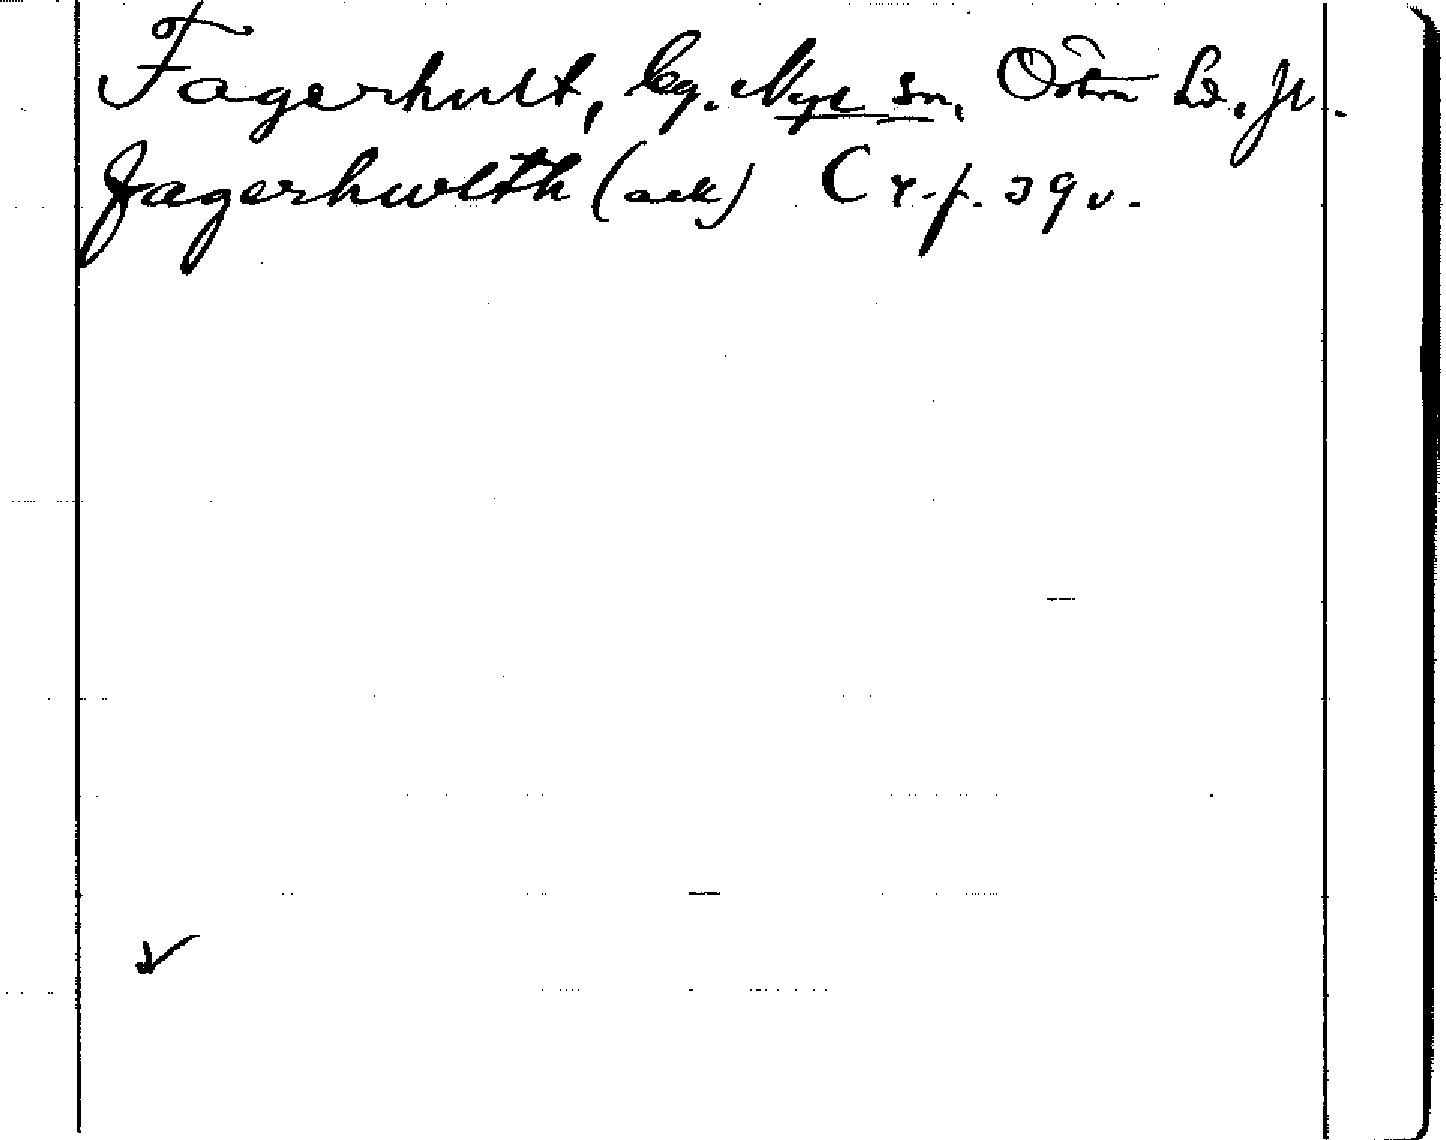 Fagerhult, by. Nye sn, Östra hd. Jr.
Fagerhwlth (ack) C x. f. 39 v.